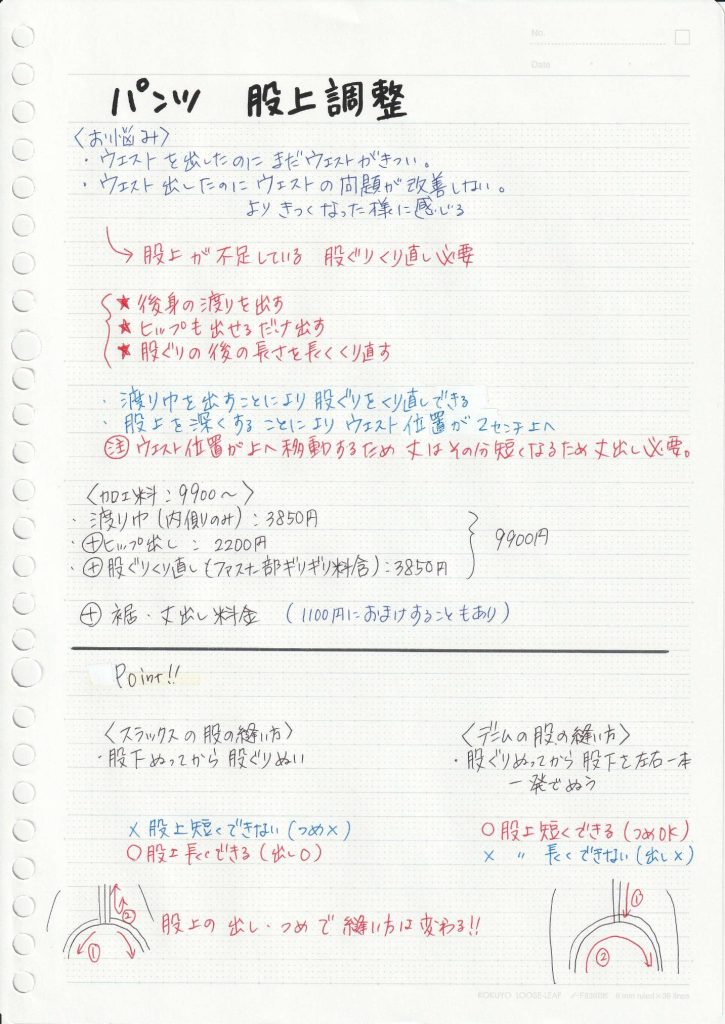 No.
Date
パンツ 股上調整
〈お悩み〉
・ウエストを出したのに まだウエストがきつい。
・ウエスト出したのに ウエストの問題が改善しない。
よりきつくなった様に感じる
→ 股上が不足している 股ぐりくり直し必要
★ 後身の渡りを出す
★ ヒップも出せるだけ出す
★ 股ぐりの後の長さを長くくり直す
・渡り巾を出すことにより股ぐりをくり直しできる
・股上を深くすることによりウエスト位置が2センチ上へ
注 ウエスト位置が上へ移動するため 丈はその分短くなるため丈出し必要。
〈加工料：9900〜〉
・渡り巾(内側のみ)：3850円
・⊕ヒップ出し：2200円
・⊕股ぐりくり直し(ファスナー部ギリギリ料含)：3850円
9900円
⊕ 裾・丈出し料金 (1100円におまけすることもあり)
Point!!
〈スラックスの股の縫い方〉
・股下ぬってから股ぐりぬい
× 股上短くできない(つめ×)
○ 股上長くできる(出し○)
〈デニムの股の縫い方〉
・股ぐりぬってから股下を左右一本
一発でぬう
○ 股上短くできる(つめOK)
× 〃 長くできない(出し×)
① ②
股上の出し・つめで縫い方は変わる!!
① ②
KOKUYO LOOSE-LEAF ノ-F836BK 6 mm ruled×36 lines